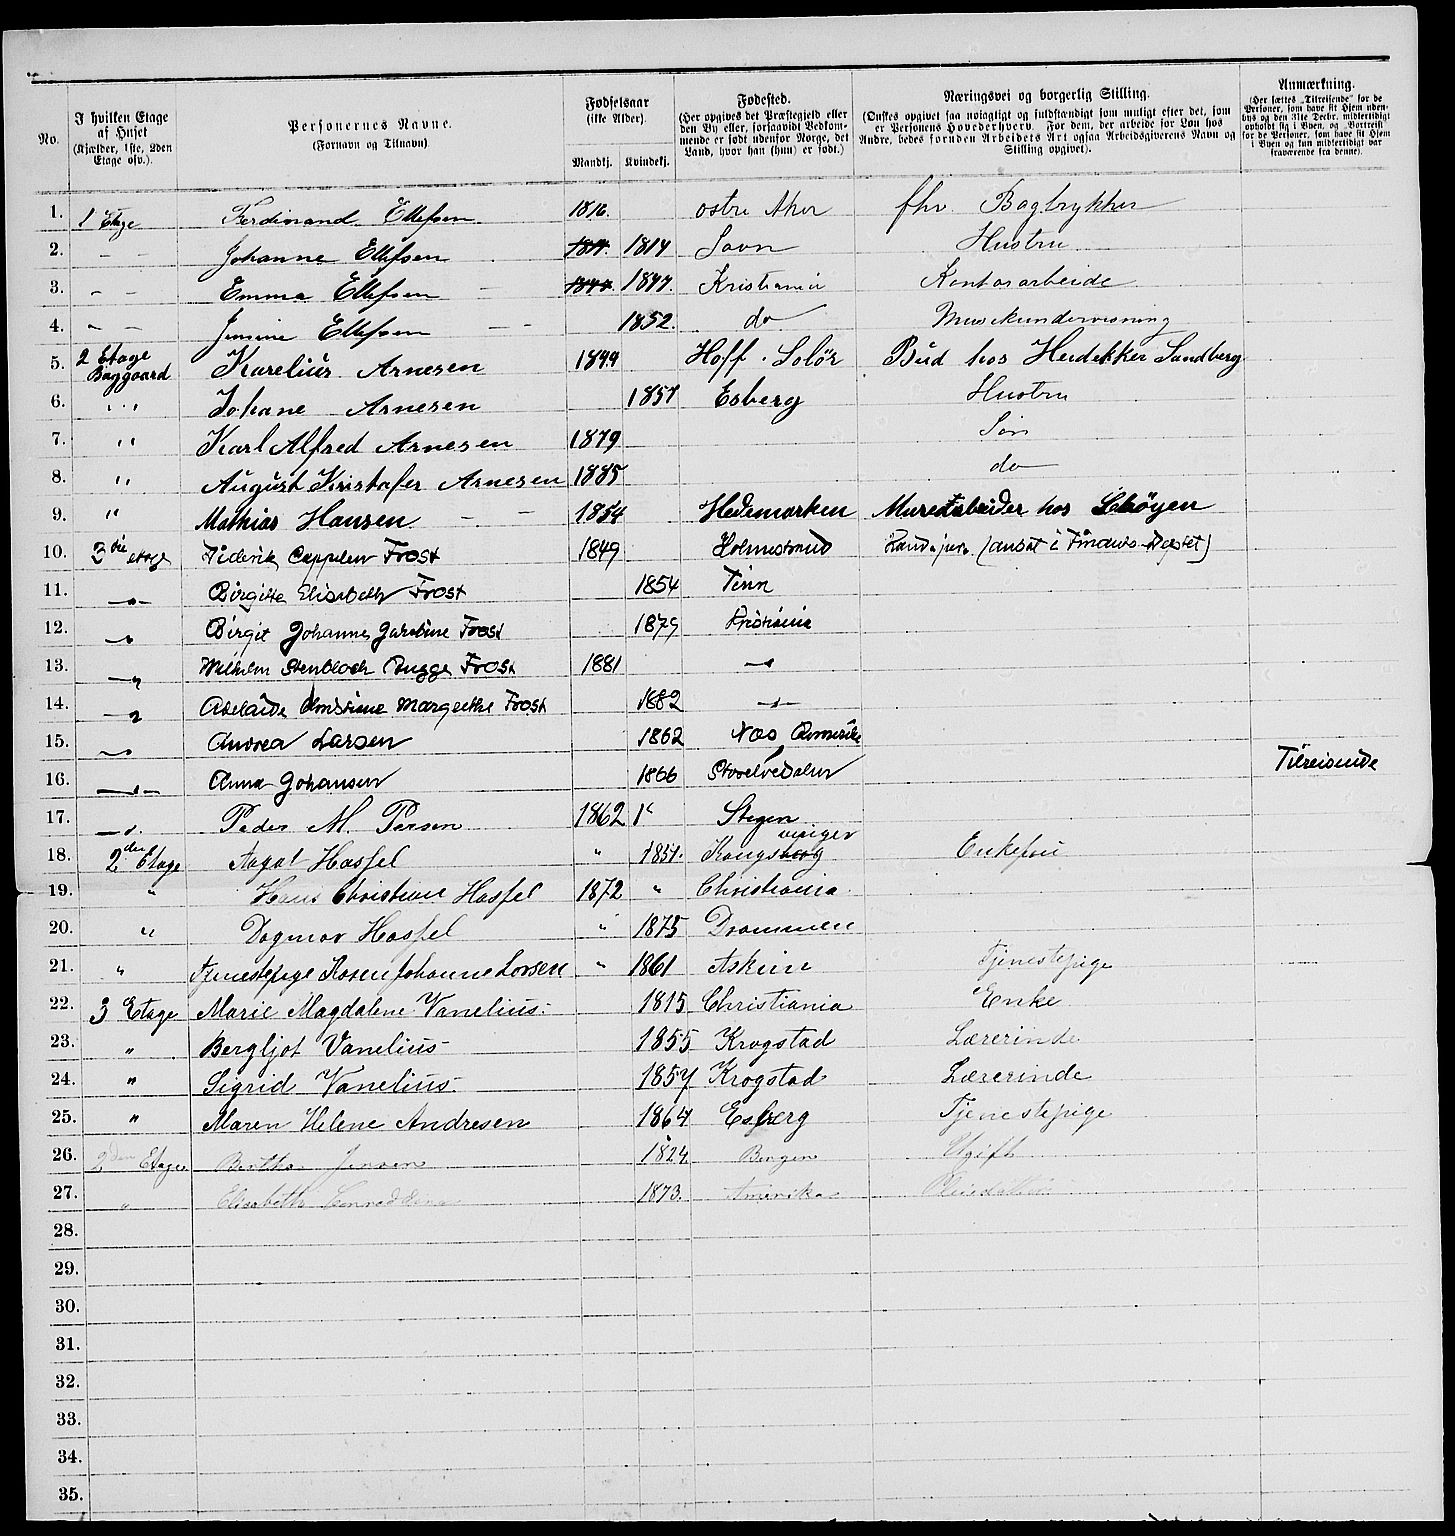 No.
I hvilken Etage af Huset (Kjælder, 1ste, 2den Etage osv.).
Personernes Navne. (Fornavn og Tilnavn).
Fødselsaar (ikke Alder). Mandkj. Kvindekj.
Fødested. (Her opgives det Præstegjeld eller den By eller, forsaavidt Vedkommende er født udenfor Norge, det Land, hvor han (hun) er født.)
Næringsvei og borgerlig Stilling. (Ønskes opgivet saa nøiagtigt og fuldstændigt som muligt efter det, som er Personens Hovederhverv. For dem, der arbeide for Løn hos Andre, bedes foruden Arbeidets Art ogsaa Arbeidsgiverens Navn og Stilling opgivet).
Anmærkning. (Her sættes „Tilreisende" for de Personer, som have sit Hjem udenbys og den 31te Decbr. midlertidigt opholdt sig i Byen, og „Bortreist" for de Personer, som have sit Hjem i Byen og kun midlertidigt var fraværende fra denne).
1. 1 Etage Ferdinand Ellefsen 1816. østre Aker fhv. Bogtrykker
2. – – Johanne Ellefsen 1814 Savn Hustru
3. – – Emma Ellefsen 1847. Kristiania Kontorarbeide
4. – – Jensine Ellefsen – – 1852. do Musikundervisning
5. 2 Etage Baggaard Karelius Arnesen 1849 Hoff. Solør Bud hos Hudekker Sandberg
6. " " Johane Arnesen 1857 Esberg Hustru
7. " Karl Alfred Arnesen 1879 Søn
8. " August Kristofer Arnesen 1885 do
9. " Mathias Hansen – – 1854 Hedemarken Murarbeider hos Schøyen
10. 3die etage Fiderik Cappelen Frost 1849 Holmestrand (ansat i Finants-Dept)
11. –"– Birgitte Elisabeth Frost 1854 Tinn
12. –" Birgit Johanne Frost 1879 Kristiania
13. –" Wilhelm Stenbloch Bugge Frost 1881 –"
14. –" Adelaide Christiane Margrethe Frost 1882 –"–
15. –" Andrea Larsen 1862 Næs Romerike
16. –"– Anna Johansen 1866 Storelvedalen Tilreisende
17. –". Peder M. Persen 1862 1" Stegen
18. 2den Etage Aagot Hassel " 1851. Kongsvinger Enkefru
19. " Hans Christian Hassel 1872 " Christiania
20. " Dagmar Hassel " 1875 Drammen
21. " Tjenestepige Karen Johanne Larsen " 1861 Askim Tjenestepige
22. 3 Etage Marie Magdalene Vanelius. 1815 Christiania Enke
23. " Bergljot Vanelius 1855 Krogstad Lærerinde
24. " Sigrid Vanelius 1857 Krogstad Lærerinde
25. " Maren Helene Andresen 1864 Esberg Tjenestepige
26. 2den Etage Berthe Jensen 1824 Bergen Ugift
27. " Elisabeth 1873. Amerika
28.
29.
30.
31.
32.
33.
34.
35.